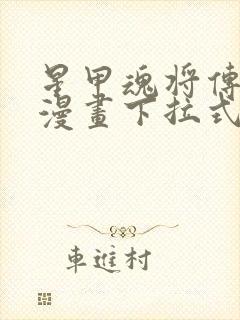 星甲魂将傳
漫畫下拉式
車進村